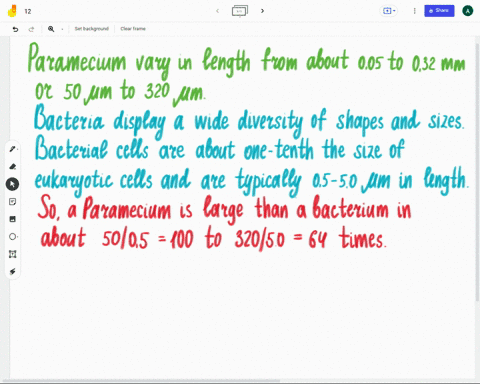 12
Share
A
Set background
Clear frame
Paramecium vary in length from about 0.05 to 0.32 mm
or 50 µm to 320 µm.
Bacteria display a wide diversity of shapes and sizes.
Bacterial cells are about one-tenth the size of
eukaryotic cells and are typically 0.5-5.0 µm in length.
So, a Paramecium is large than a bacterium in
about 50/0.5 = 100 to 320/5.0 = 64 times.